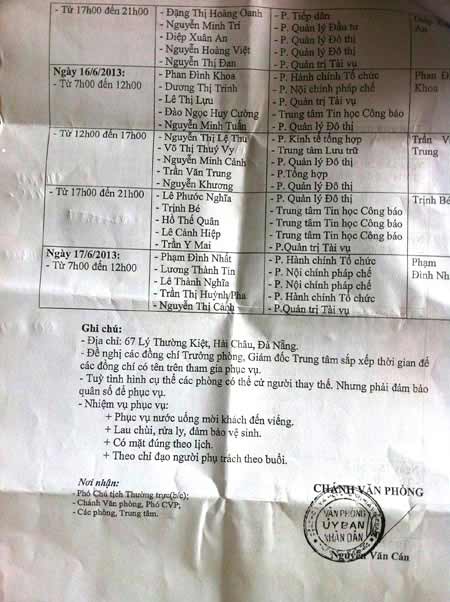 - Từ 17h00 đến 21h00
- Đặng Thị Hoàng Oanh
- Nguyễn Minh Trí
- Diệp Xuân An
- Nguyễn Hoàng Việt
- Nguyễn Thị Đan
- P. Tiếp dân
- P. Quản lý Đầu tư
- P. Quản lý Đô thị
- P. Quản lý Đô thị
- P. Quản trị Tài vụ
An
Ngày 16/6/2013:
- Từ 7h00 đến 12h00
- Phan Đình Khoa
- Dương Thị Trinh
- Lê Thị Lựu
- Đào Ngọc Huy Cường
- Nguyễn Minh Tuấn
- P. Hành chính Tổ chức
- P. Nội chính pháp chế
- P. Quản trị Tài vụ
- Trung tâm Tin học Công báo
- P. Quản lý Đô thị
Phan Đì
Khoa
- Từ 12h00 đến 17h00
- Nguyễn Thị Lệ Thu
- Võ Thị Thuý Vy
- Nguyễn Minh Cảnh
- Trần Văn Trung
- Nguyễn Khương
- P. Kinh tế tổng hợp
- Trung tâm Lưu trữ
- P. Quản lý Đô thị
- P.Tổng hợp
- P. Quản lý Đô thị
Trần V
Trung
- Từ 17h00 đến 21h00
- Lê Phước Nghĩa
- Trịnh Bé
- Hồ Thế Quân
- Lê Cảnh Hiệp
- Trần Y Mai
- P. Quản lý Đô thị
- Trung tâm Tin học Công báo
- Trung tâm Tin học Công báo
- Trung tâm Tin học Công báo
- P.Quản trị Tài vụ
Trịnh Bé
Ngày 17/6/2013:
- Từ 7h00 đến 12h00
- Phạm Đình Nhất
- Lương Thành Tín
- Lê Thành Nghĩa
- Trần Thị Huỳnh Pha
- Nguyễn Thị Cảnh
- P. Hành chính Tổ chức
- P. Nội chính pháp chế
- P. Quản lý Đô thị
- P. Hành chính Tổ chức
- P. Quản trị Tài vụ
Phạm
Đình Nh
Ghi chú:
- Địa chỉ: 67 Lý Thường Kiệt, Hải Châu, Đà Nẵng.
- Đề nghị các đồng chí Trưởng phòng, Giám đốc Trung tâm sắp xếp thời gian để
các đồng chí có tên trên tham gia phục vụ.
- Tuỳ tình hình cụ thể các phòng có thể cử người thay thế. Nhưng phải đảm bảo
quân số để phục vụ.
- Nhiệm vụ phục vụ:
+ Phục vụ nước uống mời khách đến viếng.
+ Lau chùi, rửa ly, đảm bảo vệ sinh.
+ Có mặt đúng theo lịch.
+ Theo chỉ đạo người phụ trách theo buổi.
Nơi nhận:
- Phó Chủ tịch Thường trực(b/c);
- Chánh Văn phòng, Phó CVP;
- Các phòng, Trung tâm.
CHÁNH VĂN PHÒNG
VĂN PHÒNG
ỦY BAN
NHÂN DÂN
Nguyễn Văn Cán